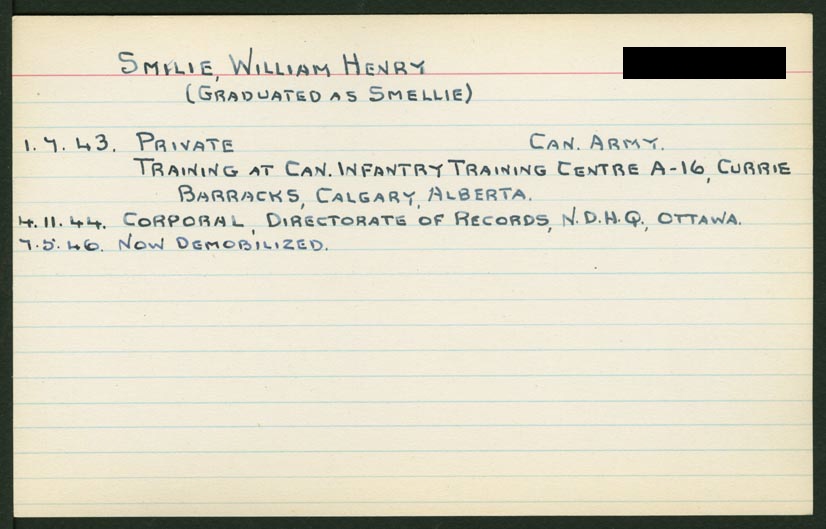 SMILIE, WILLIAM HENRY
(GRADUATED AS SMELLIE)
1.7.43. PRIVATE CAN. ARMY.
TRAINING AT CAN. INFANTRY TRAINING CENTRE A-16, CURRIE
BARRACKS, CALGARY, ALBERTA.
4.11.44. CORPORAL, DIRECTORATE OF RECORDS, N.D.H.Q., OTTAWA.
7.5.46. NOW DEMOBILIZED.